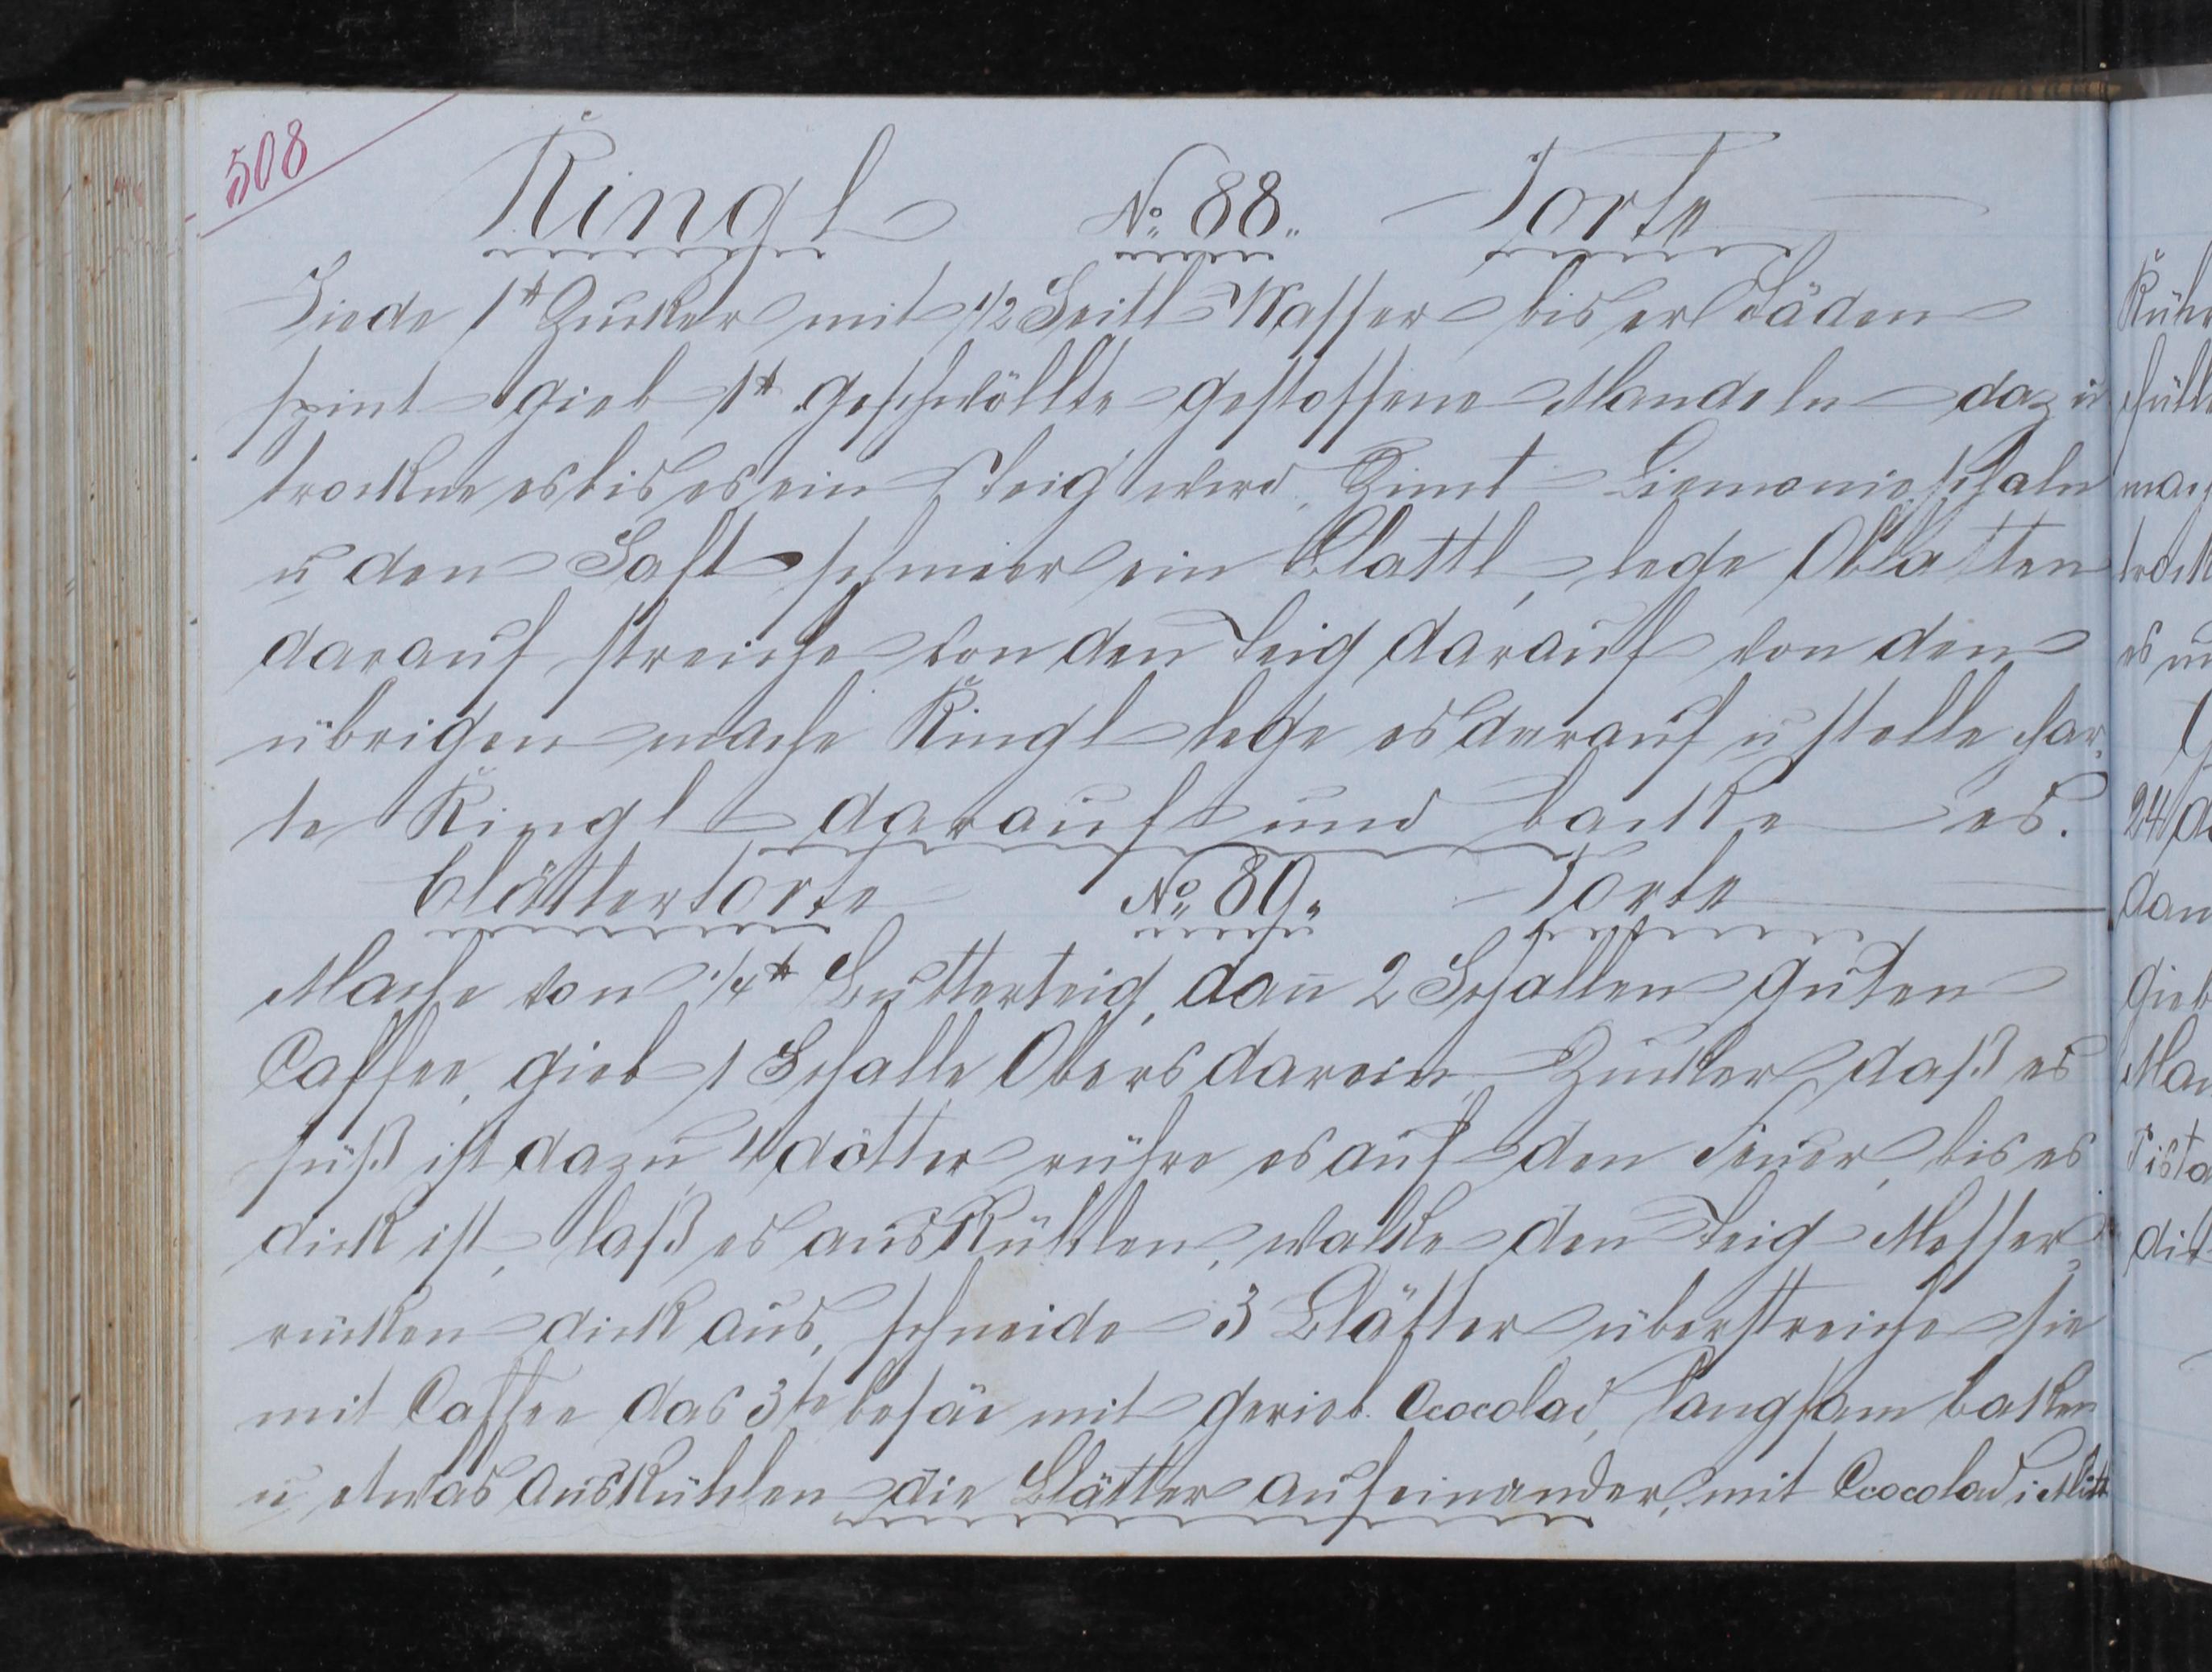 508
Ringl No 88. Torte
Siede 1 ℔ Zucker mit 1/2 Seitl Wasser bis er Fäden
spint gieb 1 ℔ geschwöllte gestossene Mandeln dazu
trockne es bis es ein Teig wird, Zimt Liemonieschaln
u den Saft schmier ein Blattl, lege Oblatten
darauf streiche von den Teig darauf von den
übrigen mache Ringl lege es darauf u stelle har-
te Ringl darauf und backe es.
Blättertorte No 89. Torte
Mache von 1/4 ℔ Butterteig, dan̄ 2 Schallen guten
Caffee, gieb 1 Schalle Obers darein, Zucker daß es
süß ist dazu 4 dötter rühre es auf den Feuer, bis es
dick ist, laß es auskühlen, walke den Teig Messer-
rücken dick aus, schneide 3 Blätter überstreiche sie
mit Caffee das 3te besäe mit gerieb. Ccocolad, langsam backen
u etwas auskühlen die Blätter aufeinander, mit Ccocolad i Mitt
Rühr
fülle
mac
trock
es un
24 d
dan
gieb
Man
Pista
dik